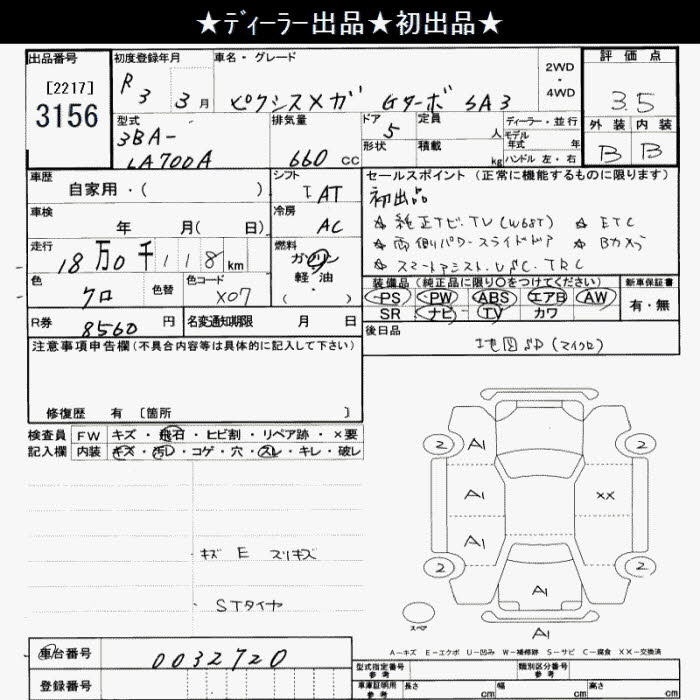 ★ディーラー出品★初出品★
出品番号
[2217]
3156
初度登録年月
R3 3月
車名・グレード
ピクシスメガ Gターボ SA3
2WD
・
4WD
評価点
3.5
外装 内装
B B
型式
3BA-
LA700A
排気量
660 cc
ドア
5
形状
定員
人
積載
kg
ディーラー・並行
モデル
年式 年
ハンドル 左・右
車歴
自家用・( )
シフト
I AT
車検
年 月( 日)
冷房
AC
走行
18万0千118km
燃料
ガソリン
軽・油
( )
色
クロ
色替
色コード
X07
R券
8560円
名変通知期限 月 日
セールスポイント (正常に機能するものに限ります)
初出品
☆ 純正ナビ.TV(W68T) ☆ ETC
☆ 両側パワースライドドア ☆ Bカメラ
☆ スマートアシスト.VSC.TRC
装備品 (純正品に限り○をつけてください)
PS PW ABS エアB AW
SR ナビ TV カワ
新車保証書
有・無
後日品
地図SD(マイクロ)
注意事項申告欄(不具合内容等は具体的に記入して下さい)
修復歴 有 [箇所 ]
検査員
記入欄
FW キズ・飛石・ヒビ割・リペア跡・×要
内装 キズ・汚レ・コゲ・穴・スレ・キレ・破レ
キズ E スリキズ
STタイヤ
2 A1 2
A1 XX
A1
2 2
A1
スペア
A1
A-キズ E-エクボ U-凹み W-補修跡 S-サビ C-腐食 XX-交換済
車台番号
0032720
登録番号
型式指定番号
参考
類別区分番号
参考
車庫証明用
参考
長さ cm 幅 cm 高さ cm